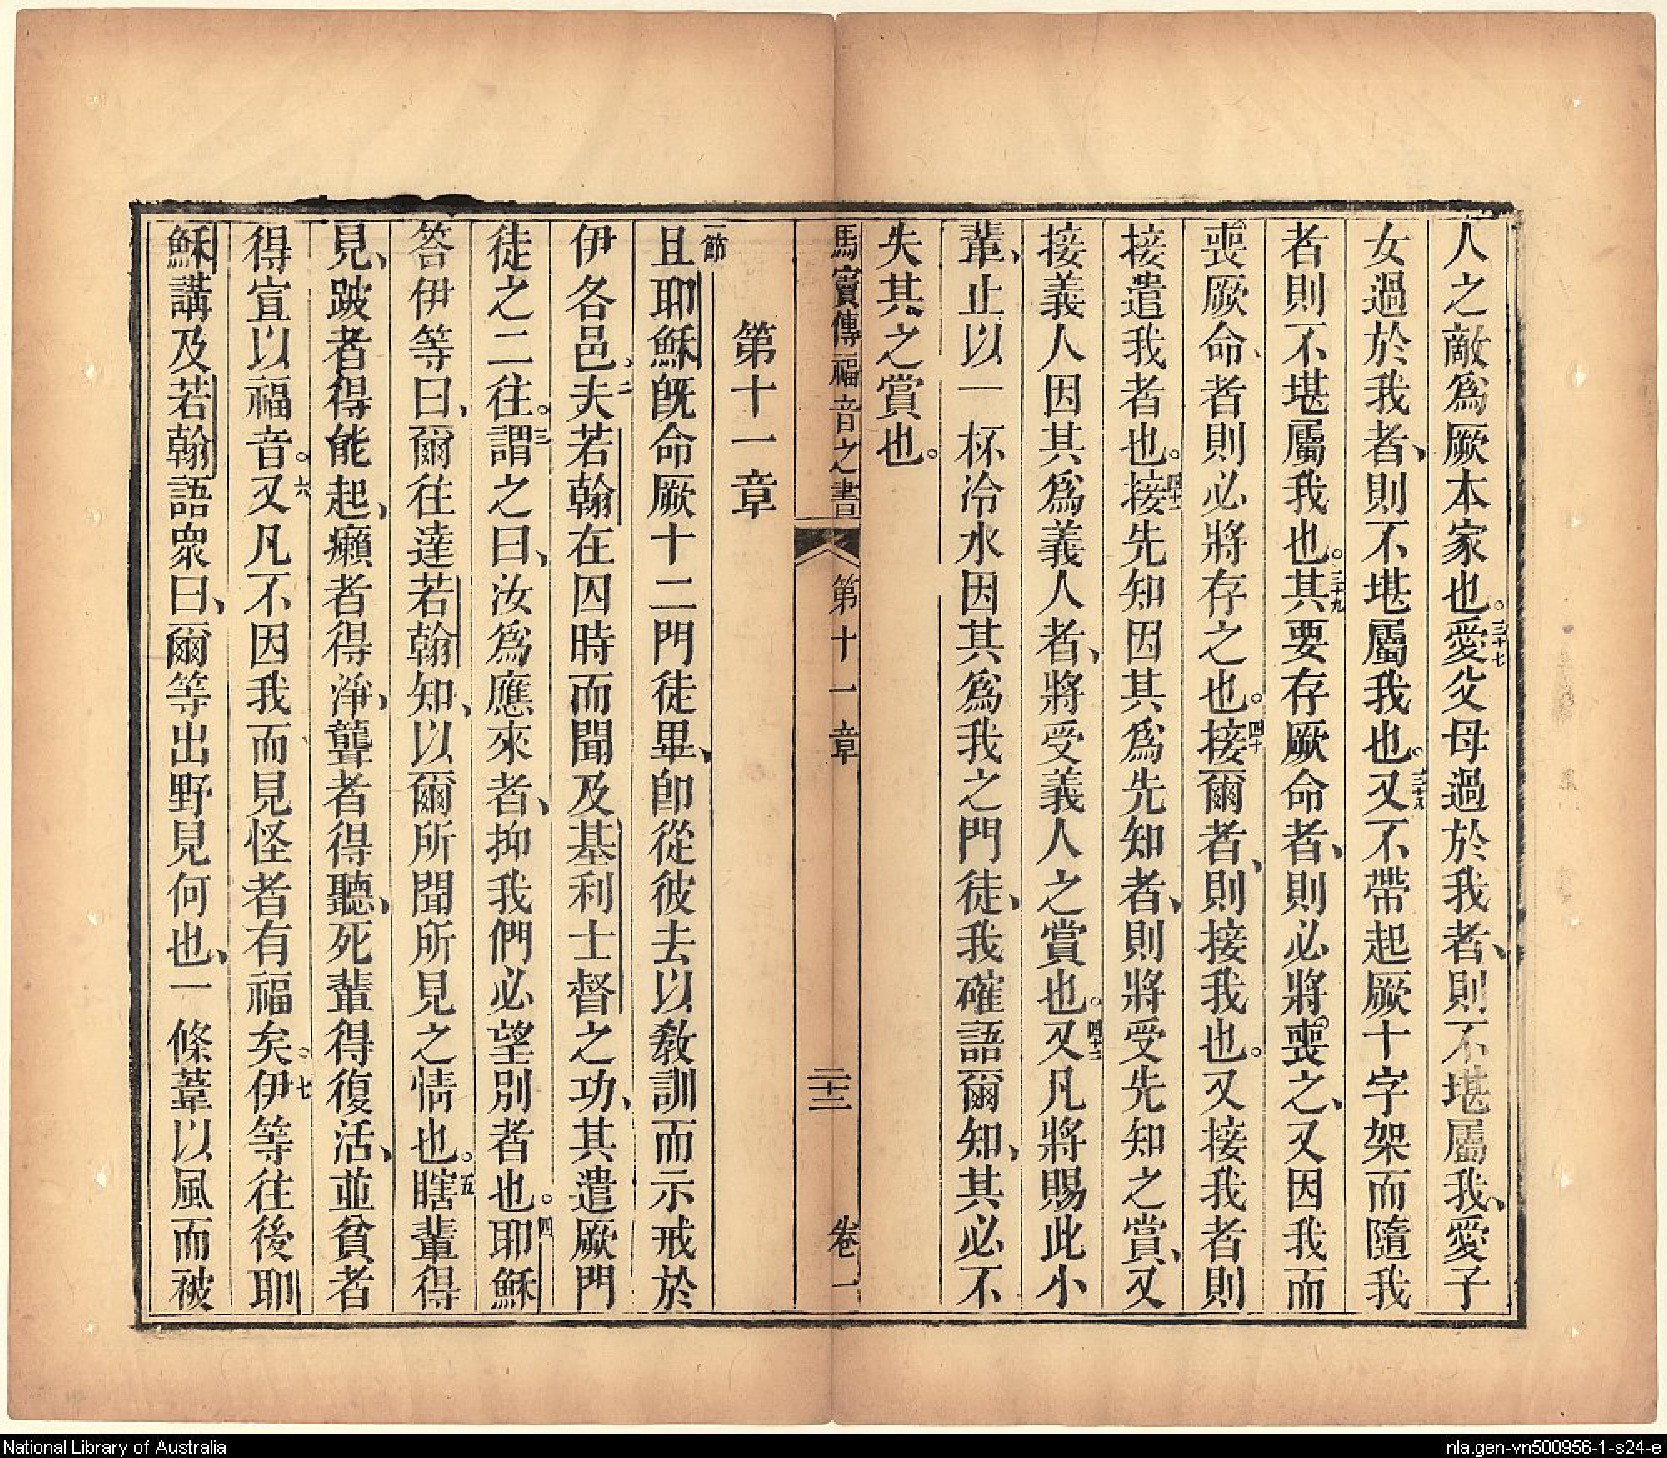 人之敵爲厥本家也。三十七愛父母過於我者、則不堪屬我、愛子
女過於我者、則不堪屬我也。三十八又不帶起厥十字架而隨我
者則不堪屬我也。三十九其要存厥命者、則必將喪之、又因我而
喪厥命、者則必將存之也。四十接爾者、則接我也。又接我者則
接遣我者也。四十一接先知因其爲先知者、則將受先知之賞、又
接義人因其爲義人者、將受義人之賞也。四十二又凡將賜此小
輩、止以一杯冷水因其爲我之門徒、我確語爾知、其必不
失其之賞也。
馬竇傳福音之書 第十一章 二十三 卷一
第十一章
一節 且耶穌旣命厥十二門徒畢、卽從彼去以教訓而示戒於
伊各邑。二夫若翰在囚時而聞及基利士督之功、其遣厥門
徒之二往。三謂之曰、汝爲應來者、抑我們必望別者也。四耶穌
答伊等曰、爾往達若翰知、以爾所聞所見之情也。五瞎輩得
見、跛者得能起、癩者得淨、聾者得聽、死輩得復活、並貧者
得宣以福音。六又凡不因我而見怪者有福矣。七伊等往後耶
穌講及若翰語衆曰、爾等出野見何也、一條葦以風而被
National Library of Australia
nla.gen-vn500956-1-s24-e